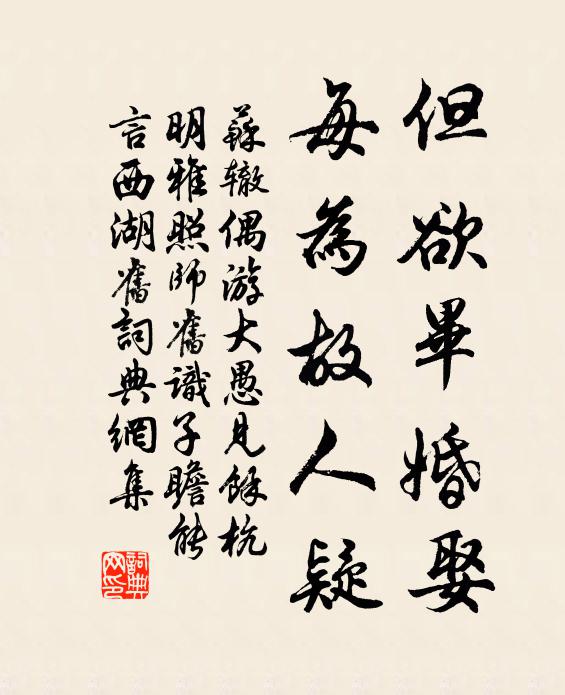 但欲畢婚娶
每為故人疑
蘇轍偶游大愚見餘杭
明雅照師舊識子瞻能
言西湖舊詞典網集
詞典网印